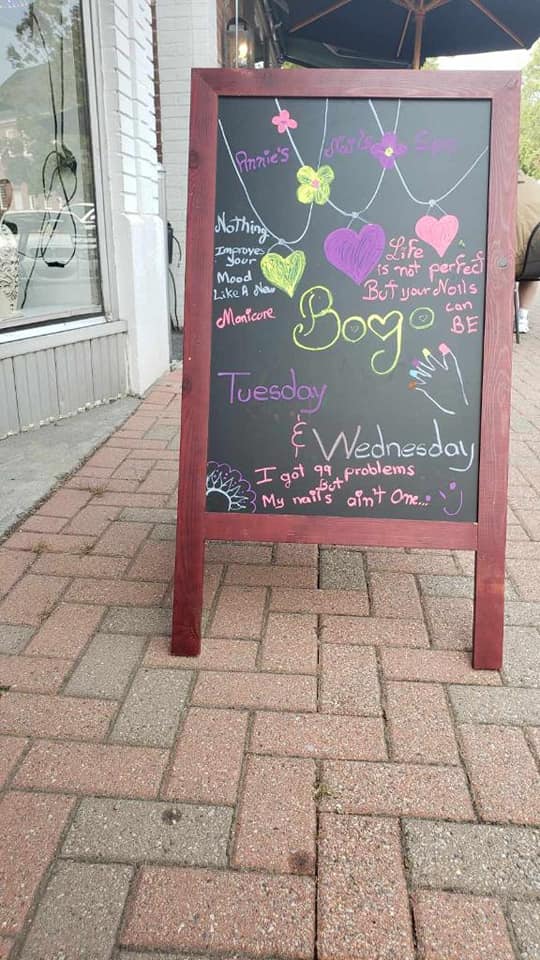 Annie's Nails
Nothing
Improves
Your
Mood
Like A New
Manicure
Life
is not perfect
But your Nails
can
BE
Bogo
Tuesday
& Wednesday
I got 99 problems
But
My nails ain't One...